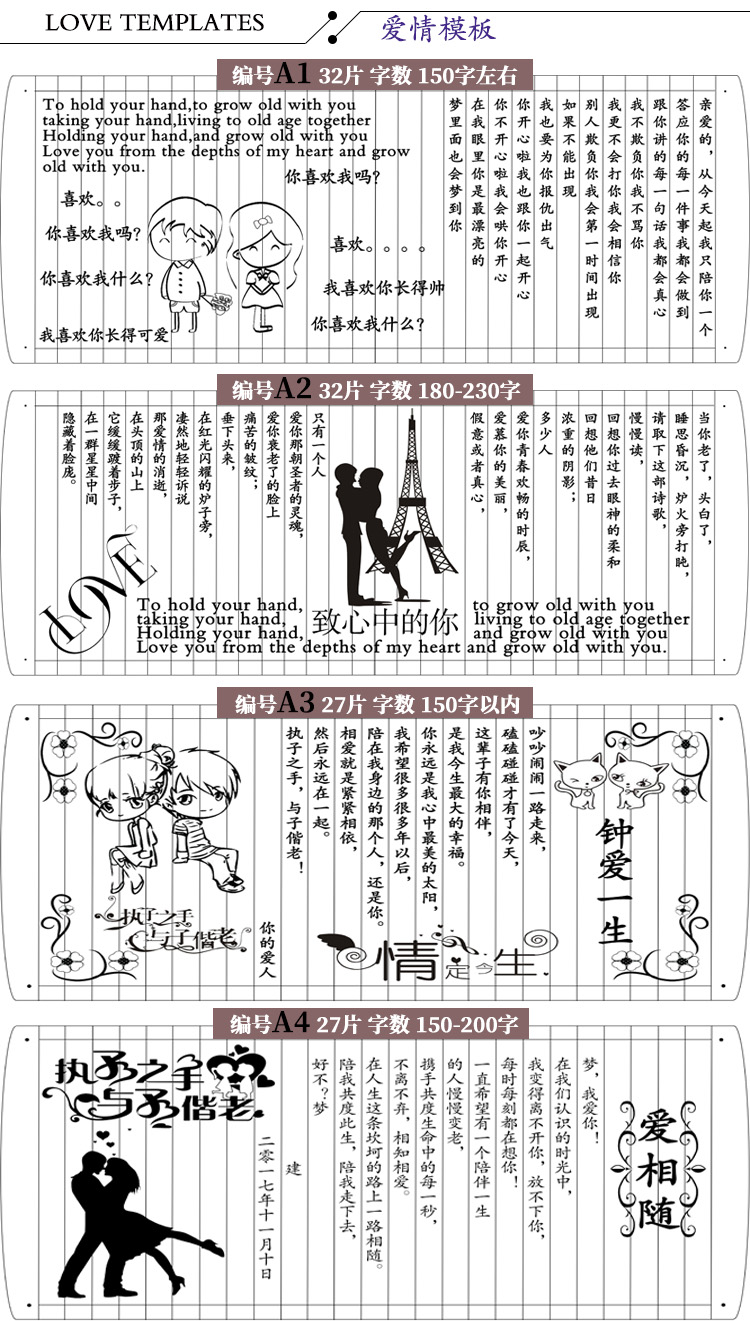 LOVE TEMPLATES
爱情模板
编号A1 32片 字数 150字左右
To hold your hand,to grow old with you
taking your hand,living to old age together
Holding your hand,and grow old with you
Love you from the depths of my heart and grow
old with you.
你喜欢我吗?
喜欢。。
你喜欢我吗?
喜欢。。。。
你喜欢我什么?
我喜欢你长得帅
你喜欢我什么?
我喜欢你长得可爱
亲爱的,从今天起我只陪你一个
答应你的每一件事我都会做到
跟你讲的每一句话我都会真心
我不欺负你我不骂你
我更不会打你我会相信你
别人欺负你我会第一时间出现
如果不能出现
我也要为你报仇出气
你开心啦我也跟你一起开心
你不开心啦我会哄你开心
在我眼里你是最漂亮的
梦里面也会梦到你
编号A2 32片 字数 180-230字
当你老了,头白了,
睡思昏沉,炉火旁打盹,
请取下这部诗歌,
慢慢读,
回想你过去眼神的柔和
回想他们昔日
浓重的阴影;
多少人
爱你青春欢畅的时辰,
爱慕你的美丽,
假意或者真心,
只有一个人
爱你那朝圣者的灵魂,
爱你衰老了的脸上
痛苦的皱纹;
垂下头来,
在红光闪耀的炉子旁,
凄然地轻轻诉说
那爱情的消逝,
在头顶的山上
它缓缓踱着步子,
在一群星星中间
隐藏着脸庞。
LOVE
To hold your hand, to grow old with you
taking your hand, living to old age together
Holding your hand, and grow old with you
Love you from the depths of my heart and grow old with you.
致心中的你
编号A3 27片 字数 150字以内
钟爱一生
吵吵闹闹一路走来,
磕磕碰碰才有了今天,
这辈子有你相伴,
是我今生最大的幸福。
你永远是我心中最美的太阳,
我希望很多很多年以后,
陪在我身边的那个人,还是你。
相爱就是紧紧相依,
然后永远在一起。
执子之手,与子偕老!
你的爱人
执子之手
与子偕老
情定今生
编号A4 27片 字数 150-200字
爱相随
梦,我爱你!
在我们认识的时光中,
我变得离不开你,放不下你,
每时每刻都在想你!
一直希望有一个陪伴一生
的人慢慢变老,
携手共度生命中的每一秒,
不离不弃,相知相爱。
在人生这条坎坷的路上一路相随。
陪我共度此生,陪我走下去,
好不?梦
建
二零一七年十一月十日
执子之手
与子偕老